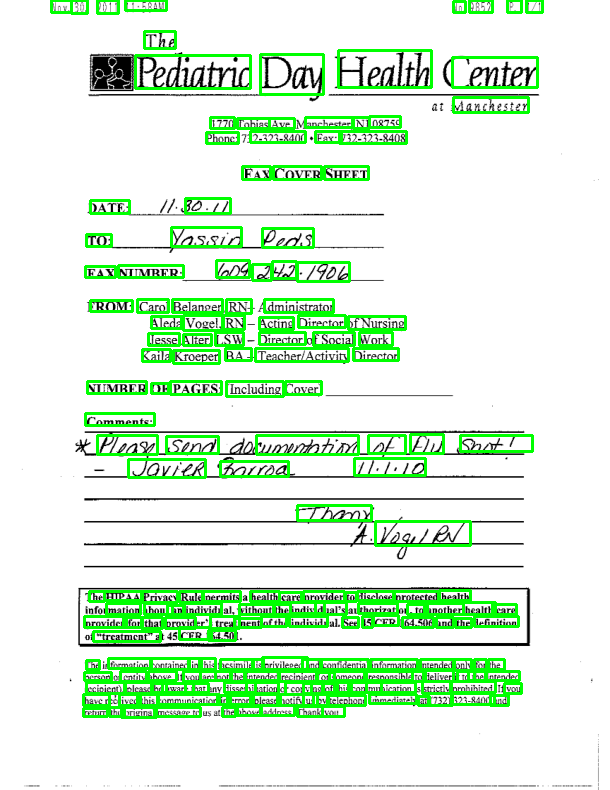 Nov 30 2011 11:58AM P 1/1
The
Pediatric Day Health Center
at Manchester
1770 Tobias Ave Manchester NJ 08759
Phone: 732-323-8400 • Fax: 732-323-8408
FAX COVER SHEET
DATE: 11.30.11
TO: Yassin Peds
FAX NUMBER: 609 242.1906
FROM: Carol Belanger, RN – Administrator
Aleda Vogel, RN – Acting Director of Nursing
Jesse Alter, LSW – Director of Social Work
Kaila Kroeper BA – Teacher/Activity Director
NUMBER OF PAGES: Including Cover
Comments:
* Please send documentation of flu shot!
– Javier 11.1.10
Thanx
A. Vogel RN
The HIPAA Privacy Rule permits a health care provider to disclose protected health
information about an individual, without the individual's authorization, to another health care
provider for that provider's treatment of the individual. See 45 CFR 164.506 and the definition
of "treatment" at 45 CFR 164.501.
The information contained in this facsimile is privileged and confidential information intended only for the
person or entity above. If you are not the intended recipient or someone responsible to deliver it to the intended
recipient), please be aware that any dissemination or copying of this communication is strictly prohibited. If you
have received this communication in error please notify us by telephone immediately at (732) 323-8400 and
return the original message to us at the above address. Thank you.